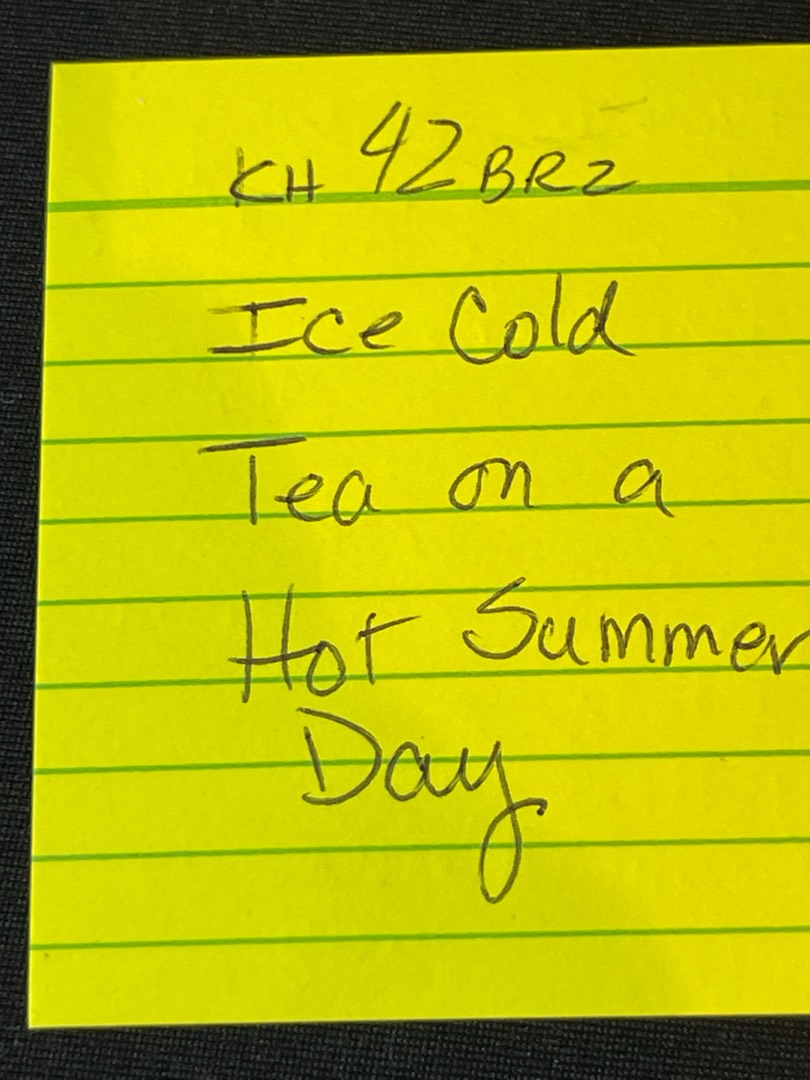 KH 42 BRZ
Ice Cold
Tea on a
Hot Summer
Day